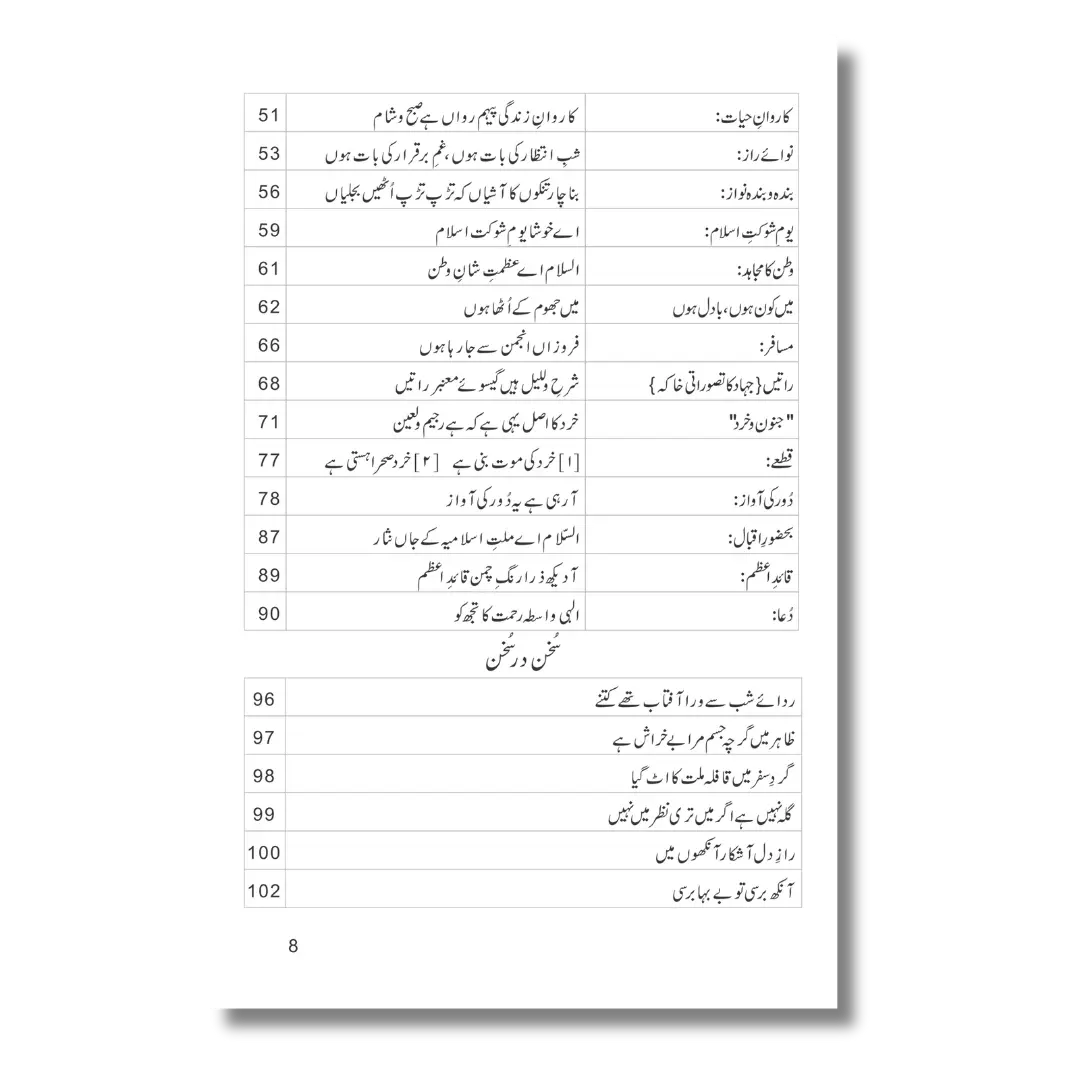 کاروانِ حیات: کاروانِ زندگی پیہم رواں ہے صبح و شام 51
نوائے راز: شبِ انتظار کی بات ہوں، غمِ برقرار کی بات ہوں 53
بندہ و بندہ نواز: بنا چار تنکوں کا آشیاں کہ تڑپ تڑپ اُٹھیں بجلیاں 56
یومِ شوکتِ اسلام: اے خوشا یومِ شوکت اسلام 59
وطن کا مجاہد: السلام اے عظمتِ شانِ وطن 61
میں کون ہوں، بادل ہوں میں جھوم کے اُٹھا ہوں 62
مسافر: فروزاں انجمن سے جا رہا ہوں 66
راتیں {جہاد کا تصوراتی خاکہ} شرحِ وللیل ہیں گیسوئے معنبر راتیں 68
"جنون و خرد" خرد کا اصل یہی ہے کہ ہے رجیم و لعین 71
قطعے: [۱] خرد کی موت بنی ہے [۲] خرد صحرا ہستی ہے 77
دُور کی آواز: آ رہی ہے یہ دُور کی آواز 78
بحضورِ اقبال: السّلام اے ملتِ اسلامیہ کے جاں نثار 87
قائدِ اعظم: آ دیکھ ذرا رنگِ چمن قائدِ اعظم 89
دُعا: الہی واسطہ رحمت کا تجھ کو 90
سُخن در سُخن
ردائے شب سے ورا آفتاب تھے کتنے 96
ظاہر میں گرچہ جسم مرا بے خراش ہے 97
گردِ سفر میں قافلہ ملت کا اٹ گیا 98
گلہ نہیں ہے اگر میں تری نظر میں نہیں 99
رازِ دل آشکار آنکھوں میں 100
آنکھ برسی تو بے بہا برسی 102
8